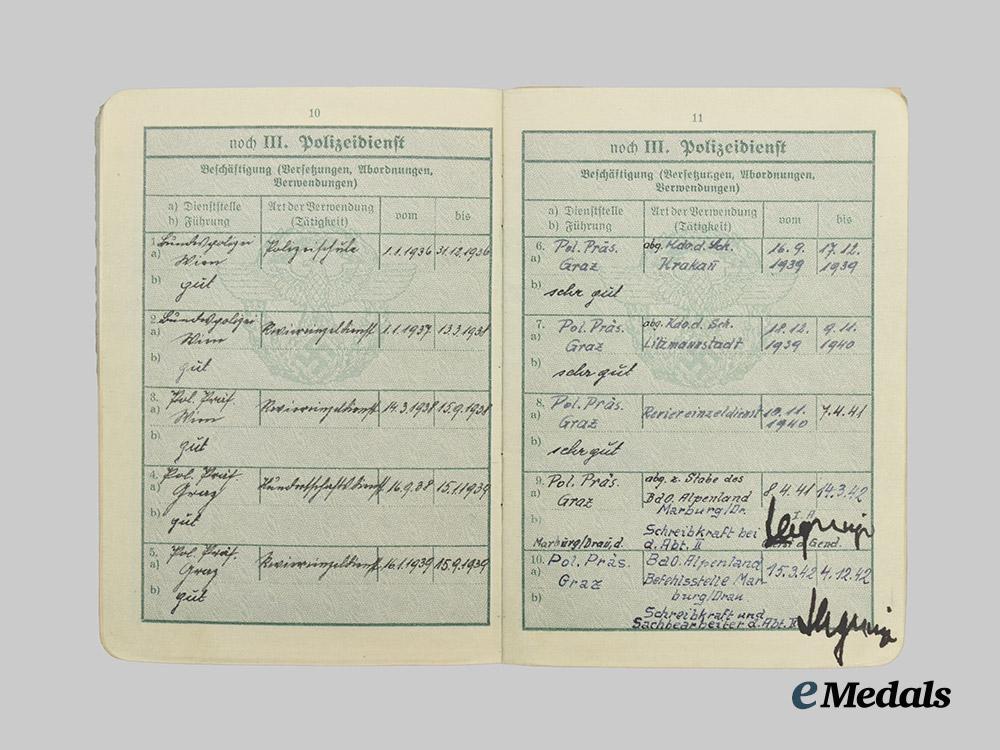 10
noch III. Polizeidienst
Beschäftigung (Versetzungen, Abordnungen,
Verwendungen)
a) Dienststelle
b) Führung
Art der Verwendung
(Tätigkeit)
vom
bis
1.
a) Bundespolizei
Wien
Polizeischule
1.1.1936
31.12.1936
b) gut
2.
a) Bundespolizei
Wien
Reviereinzeldienst
1.1.1937
13.3.1938
b) gut
3.
a) Pol. Präs.
Wien
Reviereinzeldienst
14.3.1938
15.9.1938
b) gut
4.
a) Pol. Präs.
Graz
16.9.38
15.1.1939
b) gut
5.
a) Pol. Präs.
Graz
Reviereinzeldienst
16.1.1939
15.9.1939
b) gut
11
noch III. Polizeidienst
Beschäftigung (Versetzungen, Abordnungen,
Verwendungen)
a) Dienststelle
b) Führung
Art der Verwendung
(Tätigkeit)
vom
bis
6.
a) Pol. Präs.
Graz
abg. Kdo. d. Sch.
Krakau
16.9.
1939
17.12.
1939
b) sehr gut
7.
a) Pol. Präs.
Graz
abg. Kdo. d. Sch.
Litzmannstadt
18.12.
1939
9.11.
1940
b) sehr gut
8.
a) Pol. Präs.
Graz
Reviereinzeldienst
10.11.
1940
7.4.41
b) sehr gut
9.
a) Pol. Präs.
Graz
abg. z. Stabe des
BdO. Alpenland
Marburg/Dr.
8.4.41
14.3.42
b)
Schreibkraft bei
d. Abt. II
I. A.
Marburg/Drau, d.
d. Gend.
10.
a) Pol. Präs.
Graz
BdO. Alpenland
Befehlsstelle Mar-
burg/Drau
15.3.42
4.12.42
b)
Schreibkraft und
Sachbearbeiter d. Abt. II
eMedals